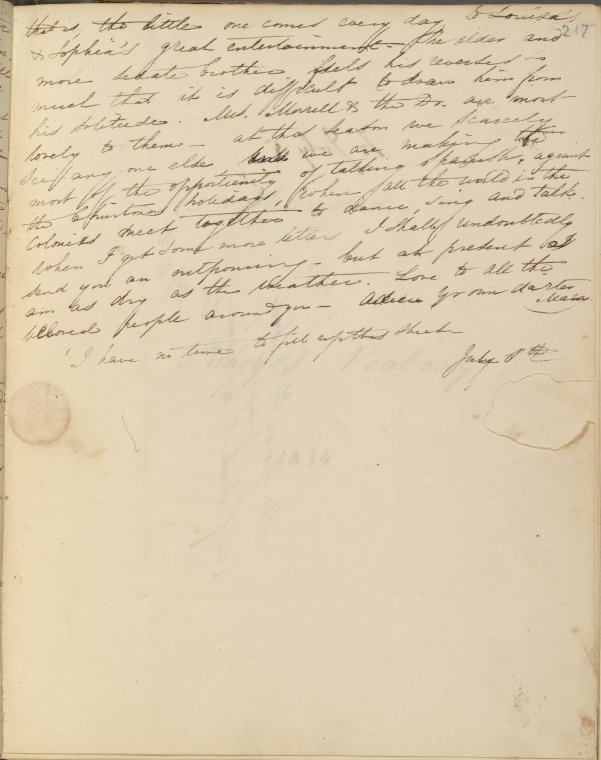 217
that is, the little one comes every day to Louisa's
& Sophia's great entertainment. The elder and
more sedate brother feels his reverses so
much that it is difficult to draw him from
his solitude. Mrs. Morrell & the Dr. are most
lovely to them — at this season we scarcely
see any one else but we are making the
most of the opportunity of talking Spanish, against
the Christmas holidays, when all the world in the
Colonies meet together to dance, sing and talk.
When I get some more letters I shall undoubtedly
send you an outpouring — but at present I
am as dry as the weather. Love to all the
beloved people around you — Adieu Yr own darter
Mary
I have no time to fill up this sheet
July 8th
Peabody
1834